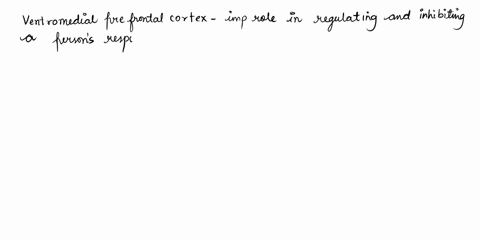 Ventromedial pre frontal cortex - imp role in regulating and inhibiting
a person's resp